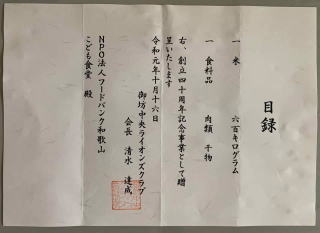 目録
一 米 六百キログラム
一 食料品 肉類 干物
右、創立四十周年記念事業として贈
呈いたします
令和元年十月十六日
御坊中央ライオンズクラブ
会長 清水 達成
NPO法人フードバンク和歌山
こども食堂 殿